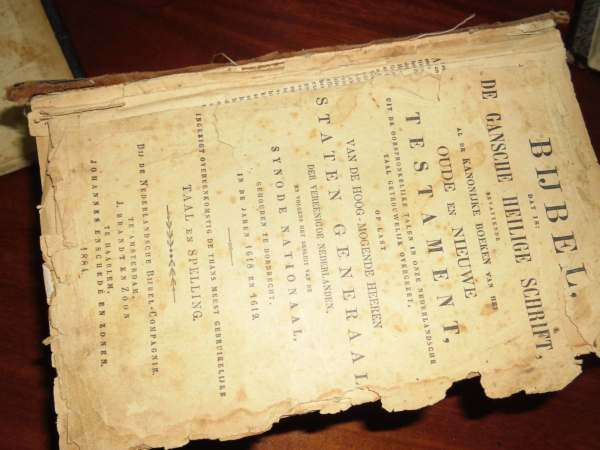 BIJBEL,
DAT IS:
DE GANSCHE HEILIGE SCHRIFT,
BEVATTENDE
AL DE KANONIJKE BOEKEN VAN HET
OUDE EN NIEUWE
TESTAMENT,
UIT DE OORSPRONKELIJKE TALEN IN ONZE NEDERLANDSCHE
TAAL GETROUWELIJK OVERGEZET,
OP LAST
VAN DE HOOG-MOGENDE HEEREN
STATEN GENERAAL
DER VEREENIGDE NEDERLANDEN,
EN VOLGENS HET BESLUIT VAN DE
SYNODE NATIONAAL,
GEHOUDEN TE DORDRECHT,
IN DE JAREN 1618 EN 1619.
INGERIGT OVEREENKOMSTIG DE THANS MEEST GEBRUIKELIJKE
TAAL EN SPELLING.
BIJ DE NEDERLANDSCHE BIJBEL-COMPAGNIE.
TE AMSTERDAM,
J. BRANDT EN ZOON
TE HAARLEM,
JOHANNES ENSCHEDÉ EN ZONEN.